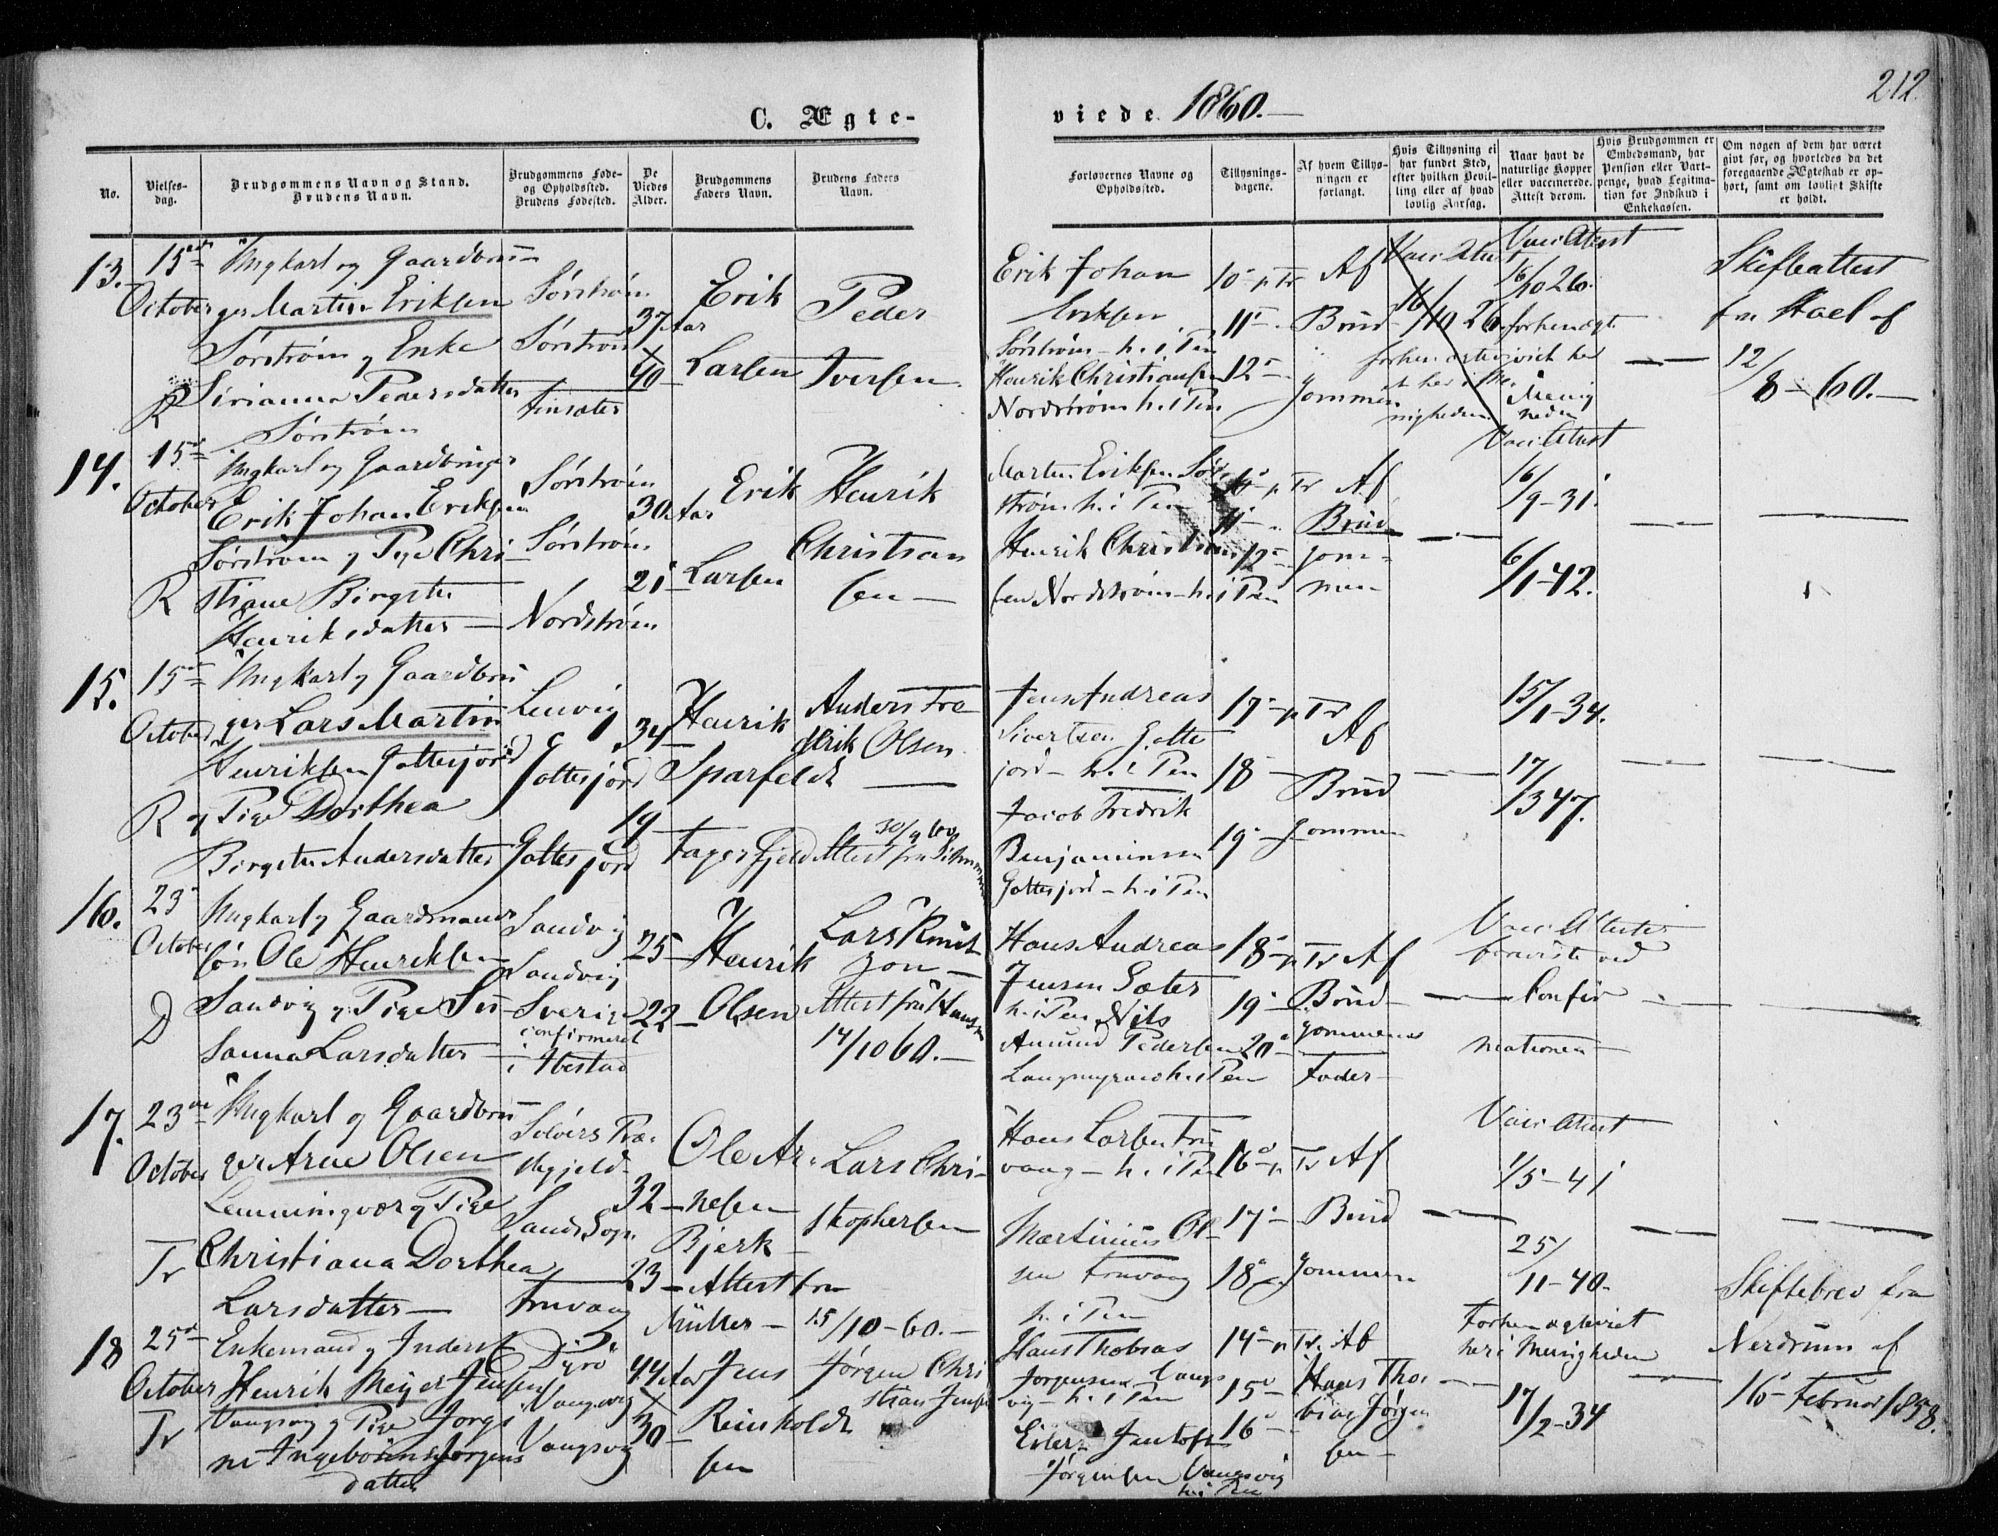 212
C. Ægte-
viede 1860.
No.
Vielses-
dag.
Brudgommens Navn og Stand.
Brudens Navn.
Brudgommens Føde-
og Opholdssted.
Brudens Fødested.
De
Viedes
Alder.
Brudgommens
Faders Navn.
Brudens Faders
Navn.
Forlovernes Navne og
Opholdssted.
Tillysnings-
dagene.
Af hvem Tillys-
ningen er
forlangt.
Hvis Tillysning ei
har fundet Sted,
efter hvilken Bevil-
ling eller af hvad
lovlig Aarsag.
Naar havt de
naturlige Kopper
eller vaccinerede.
Attest derom.
Hvis Brudgommen er
Embedsmand, har
Pension eller Vart-
penge, hvad Legitima-
tion for Indskud i
Enkekassen.
Om nogen af dem har været
givt før, og hvorledes da det
foregaaende Ægteskab er op-
hørt, samt om lovligt Skifte
er holdt.
13.
15de
October
R
Ungkarl og Gaardbru-
ger Martin Eriksen
Sørstrøm og Enke
Sirianna Pedersdatter
Sørstrøm
Sørstrøm
Sørstrøm
Finsæter
37 Aar
40
Erik
Larsen
Peder
Iversen
Erik Johan
Eriksen
Sørstrøm h. i Pen
Henrik Christiansen
Nordstrøm h. i Pen
10 p Tr
11
12
Af
Brud-
gommen
Vacc Attest
16/10 26.
Vacc Attest
16/10 26.
forhen ægte-
viet her
i Menig
heden
Skifteattest
fra Hoel af
12/8 - 60.
14.
15de
October
R
Ungkarl og Gaardbruger
Erik Johan Eriksen
Sørstrøm og Pige Chri-
stiane Birgitte
Henriksdatter
Sørstrøm
Sørstrøm
Nordstrøm
30 Aar
21
Erik
Larsen
Henrik
Christian
sen
Martin Eriksen Sør-
strøm h. i Pen
Henrik Christian
sen Nordstrøm h. i Pen
10 p Tr
11
12
Af
Brud
gom-
men
Vacc Attest
16/9 - 31
6/1 - 42.
15.
15de
October
R
Ungkarl og Gaardbru
ger Lars Martin
Henriksen Gottesjord
og Pige Dorthea
Birgitte Andersdatter
Lenvig
Gottesjord
Gottesjord
34
19
Henrik
Sparfeldt
Fagerfjeld
Anders Fre
derik Olsen
Attest fra
30/9 60
Jens Andreas
Sivertsen Gotte
jord - h. i Pen
Jacob Fredrik
Benjaminsen
Gottesjord - h. i Pen
17 p Tr
18
19
Af
Brud
gommen
15/1 - 34.
17/3 47.
16.
23
October
D
Ungkarl og Gaardmands
søn Ole Henriksen
Sandvig og Pige Su
sanna Larsdatter
Sandvig
Sandvig
Sverige
confirmeret
i Ibestad
25
22
Henrik
Olsen
Lars Knut
zon
Attest fra Hansen
14/10 60.
Hans Andreas
Jensen Sæter
h. i Pen Nils
Amund Pedersen
h. i Pen
18 p Tr
19
20
Af
Brud-
gommens
Fader
Vacc Attester
beviste ved
Confir
mationen
17.
23de
October
Tr
Ungkarl og Gaardbru
ger Arne Olsen
Lemmingvær og Pige
Christiana Dorthea
Larsdatter
Selvers Præ-
stegjeld
Sands Sogn
Finvaag
32
23
Ole Ar-
nesen
Bjerk
Attest fra
Müller 15/10 - 60.
Lars Chri-
stophersen
Hans Larsen Fin
vaag - h. i Pen
Martinius Ol-
sen Finvaag
h. i Pen
16 p Tr
17
18
Af
Brud
gommen
Vacc Attest
1/5 - 41
25/11 - 40.
18
25de
October
Tr
Enkemand og Inderst
Henrik Meyer Jensen
Vangsvig og Pige Jørgi
ne Ingeborg Jørgens
datter
Dyrø
Vangsvig
Vangsvig
44 Aar
30
Jens
Reinholdt
sen
Jørgen Chri
stian Jensen
Hans Thobias
Jørgensen Vangs
vig - h. i Pen
Eilert Jentoft
Jørgensen Vangsvig
h. i Pen
14 p Tr.
15
16
Af
Hans Tho-
bias Jørgen
sen
Forhen ægteviet
her i Menigheden
17/2 - 34
Skiftebrev fra
Nerdrum af
16 Februar 1858.